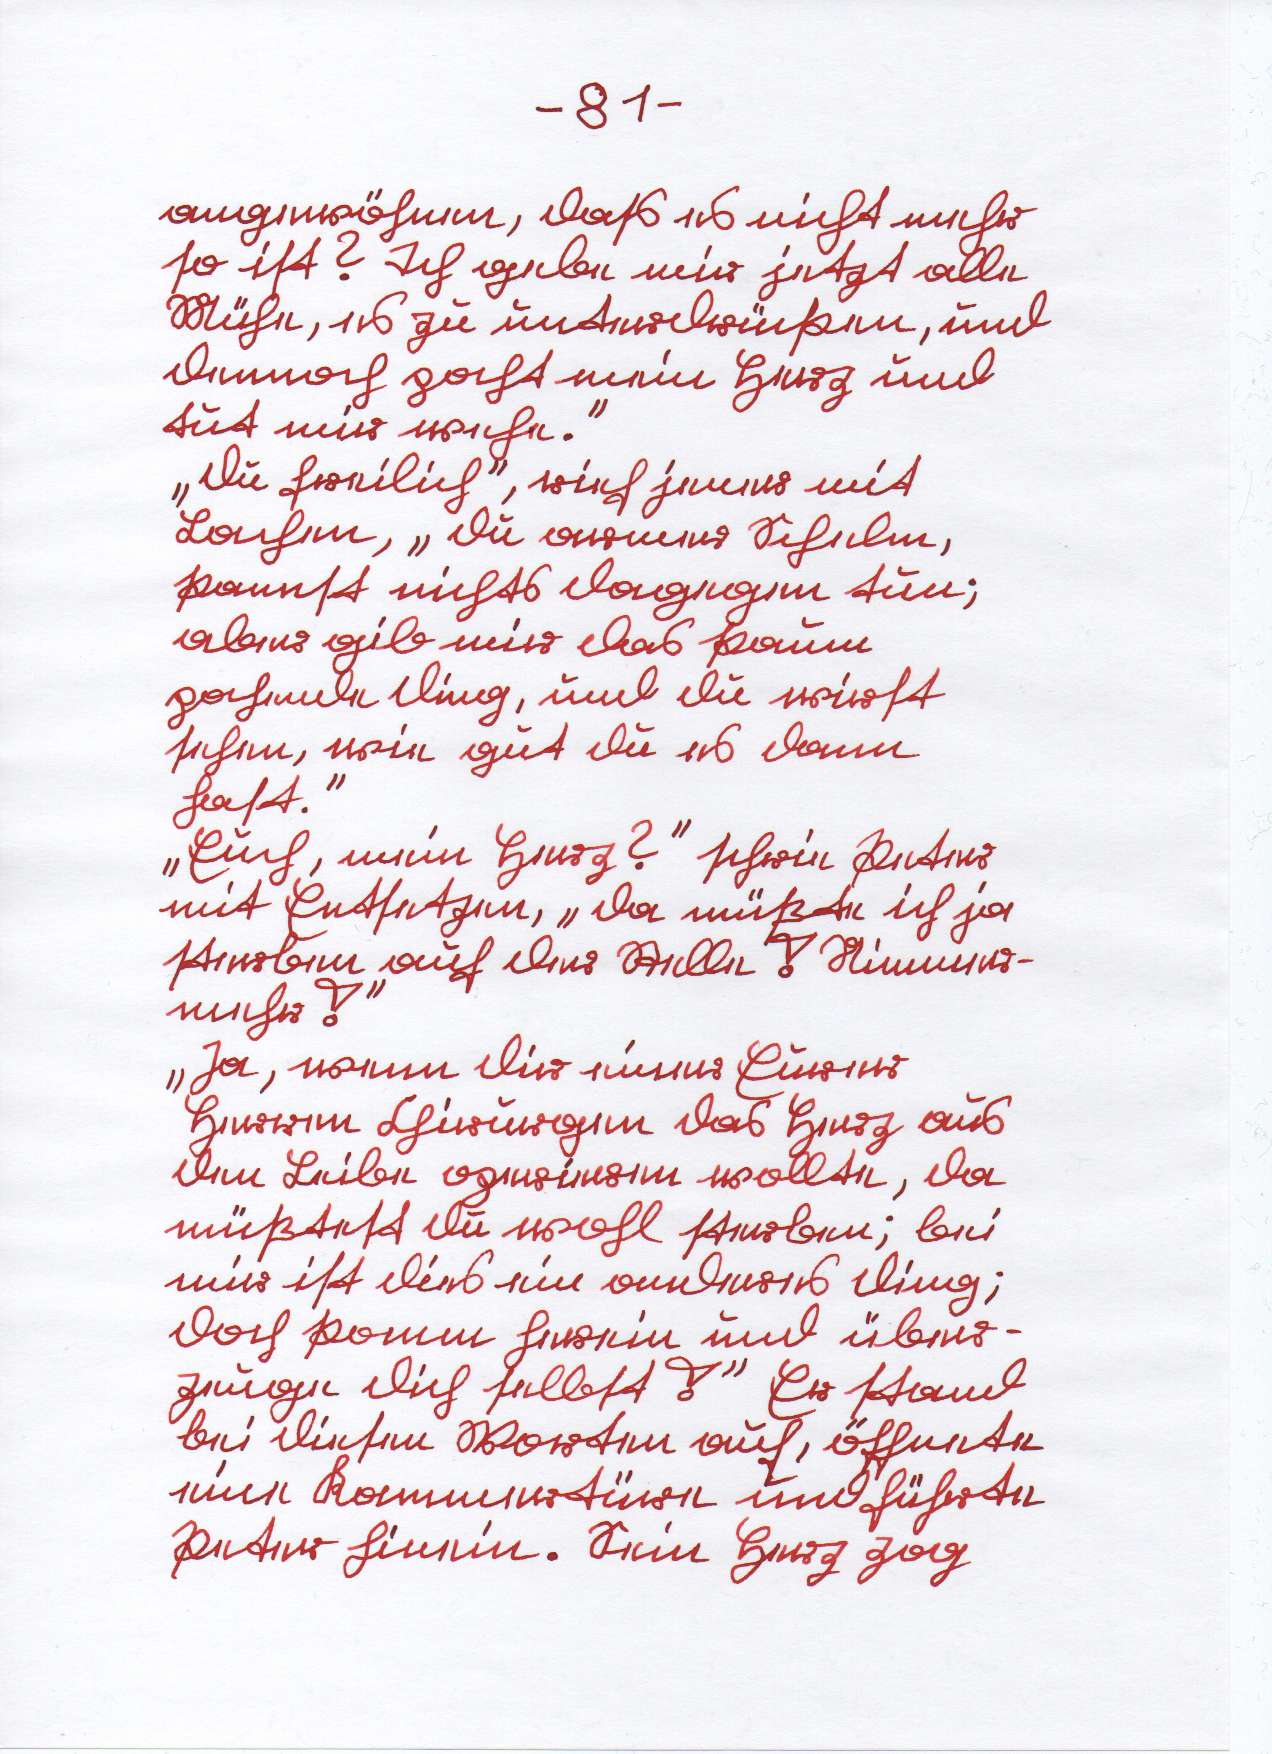 -81-
angewöhnen, daß es nicht mehr
so ist? Ich gebe mir jetzt alle
Mühe, es zu unterdrücken, und
dennoch pocht mein Herz und
tut mir wehe."
„Du freilich", rief jener mit
Lachen, „du armer Schelm,
kannst nichts dagegen tun;
aber gib mir das kaum
pochende Ding, und du wirst
sehen, wie gut du es dann
hast."
„Euch, mein Herz?" schrie Peter
mit Entsetzen, „da müßte ich ja
sterben auf der Stelle! Nimmer-
mehr!"
„Ja, wenn dir einer Eurer
Herren Chirurgen das Herz aus
dem Leibe operieren wollte, da
müßtest du wohl sterben; bei
mir ist dies ein anderes Ding;
doch komm herein und über-
zeuge dich selbst!" Er stand
bei diesen Worten auf, öffnete
eine Kammertüre und führte
Peter hinein. Sein Herz zog